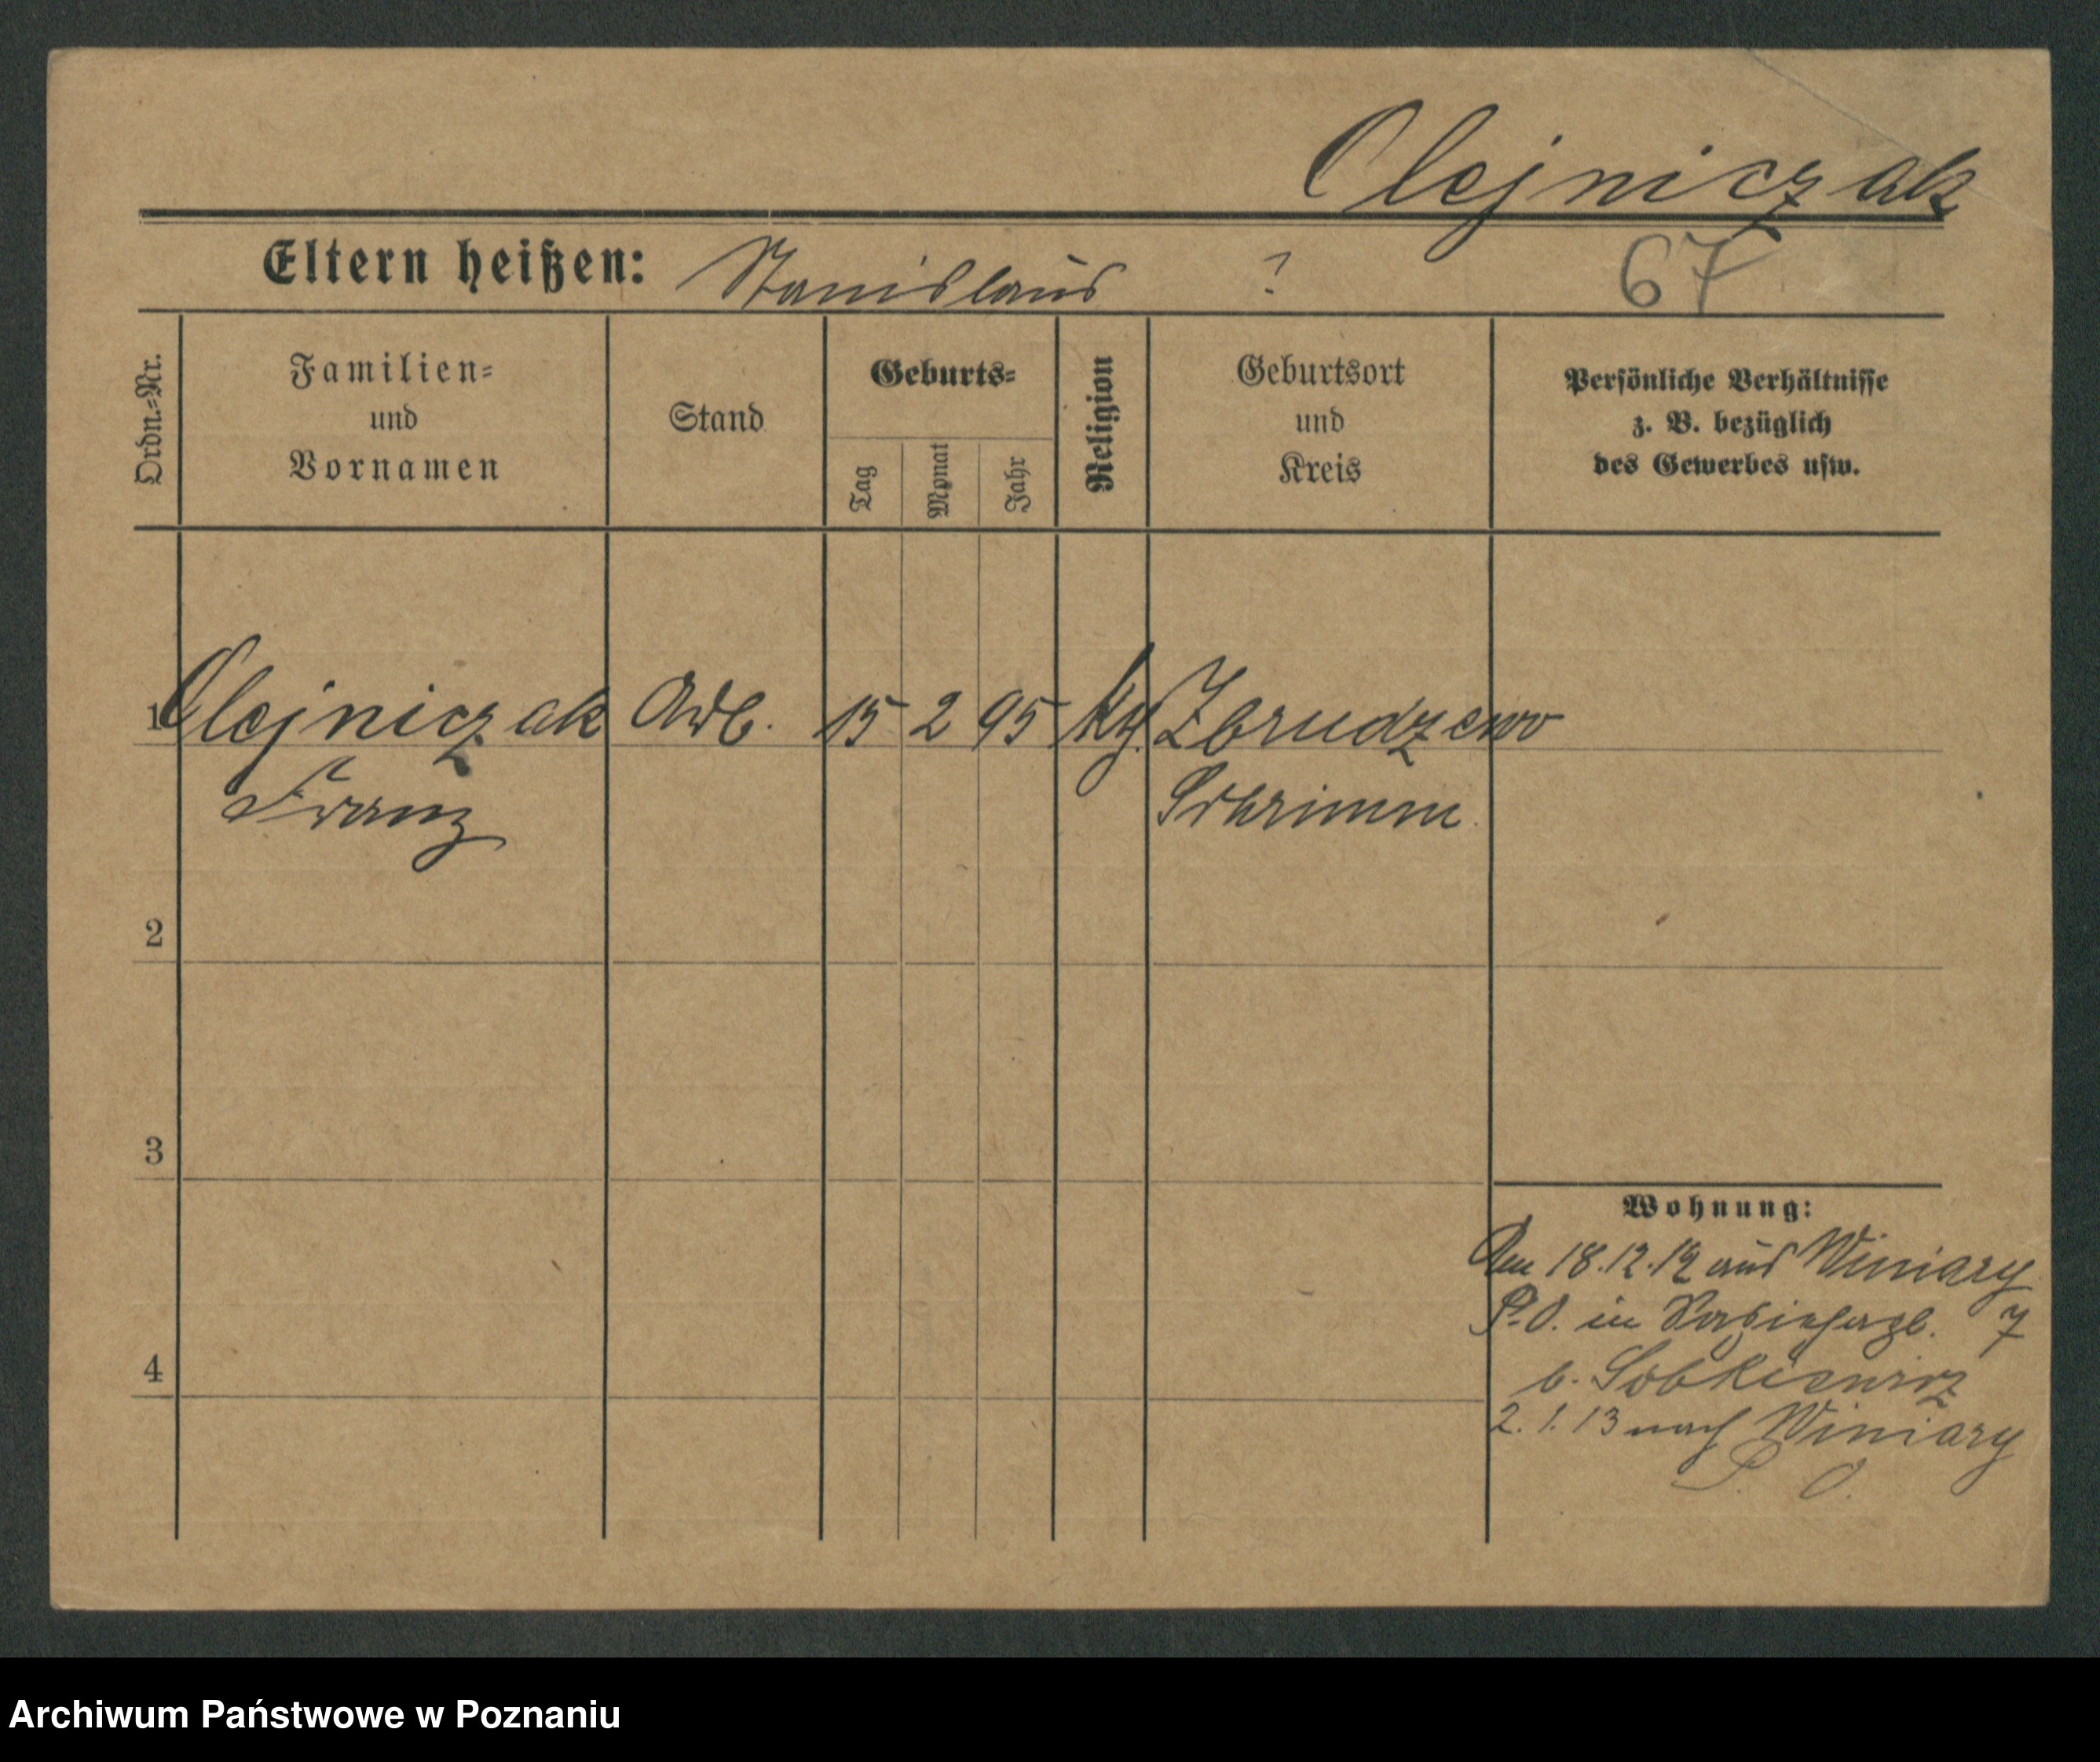 Olejniczak
Eltern heißen: Stanislaus ?
67
Ordn.=Nr.
Familien=
und
Vornamen
Stand
Geburts=
Tag
Monat
Jahr
Religion
Geburtsort
und
Kreis
Persönliche Verhältnisse
z. B. bezüglich
des Gewerbes usw.
1 Olejniczak Arb. 15 2 95 Zbrudzewo
Franz Schrimm
2
3
4
Wohnung:
18.12.12 aus Winiary
P.O. in 7
b. Sobkiewicz
2.1.13 nach Winiary
P. O.
Archiwum Państwowe w Poznaniu